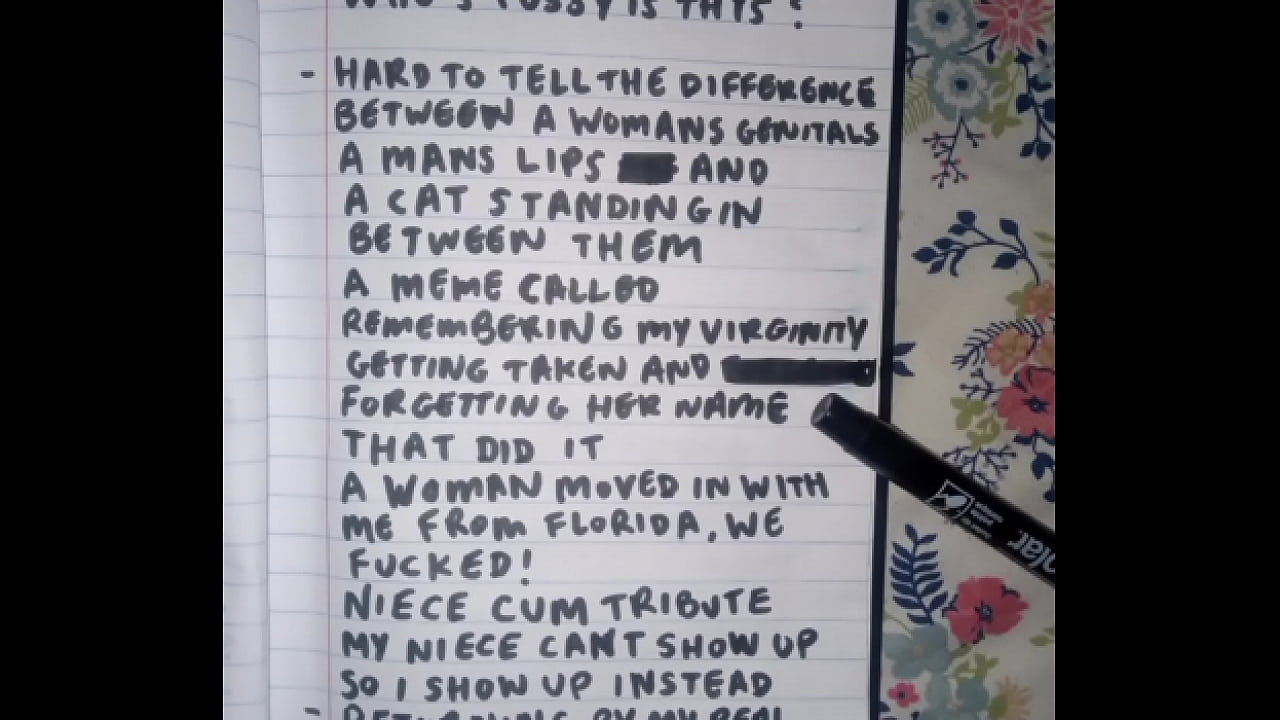 WHO'S PUSSY IS THIS ?
- HARD TO TELL THE DIFFERENCE
BETWEEN A WOMANS GENITALS
A MANS LIPS AND
A CAT STANDING IN
BETWEEN THEM
A MEME CALLED
REMEMBERING MY VIRGINITY
GETTING TAKEN AND
FORGETTING HER NAME
THAT DID IT
A WOMAN MOVED IN WITH
ME FROM FLORIDA, WE
FUCKED!
NIECE CUM TRIBUTE
MY NIECE CAN'T SHOW UP
SO I SHOW UP INSTEAD
- BY MY REAL